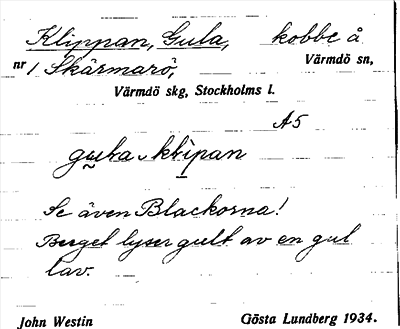 Klippan, Gula, kobbe å
nr 1 Skärmarö, Värmdö sn,
Värmdö skg, Stockholms l.
A5
gula klipan
Se även Blackorna!
Berget lyser gult av en gul
lav.
John Westin Gösta Lundberg 1934.